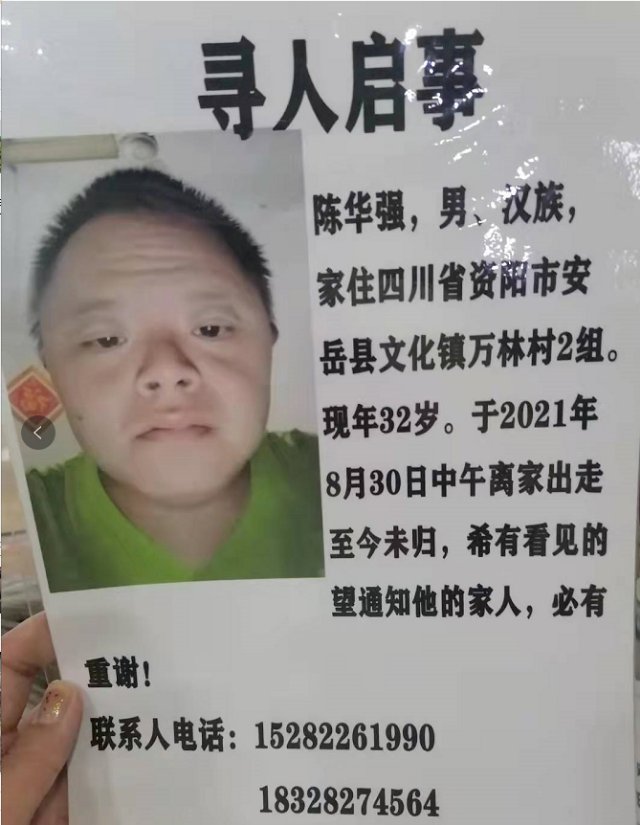 寻人启事
陈华强，男、汉族，
家住四川省资阳市安
岳县文化镇万林村2组。
现年32岁。于2021年
8月30日中午离家出走
至今未归，希有看见的
望通知他的家人，必有
重谢！
联系人电话：15282261990
18328274564